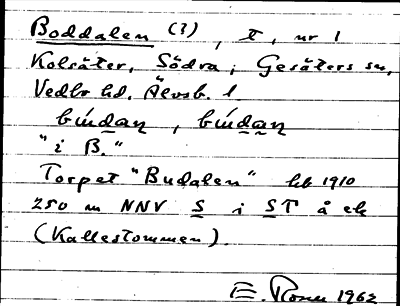 Boddalen (?), t, nr 1
Kolsäter, Södra, Gesäters sn,
Vedbo hd. Älvsb. l
búdaɳ, búdaɳ
"i B."
Torpet "Budalen" hb 1910
250 m NNV S i ST å ek
(Kallestommen).
E. 1962